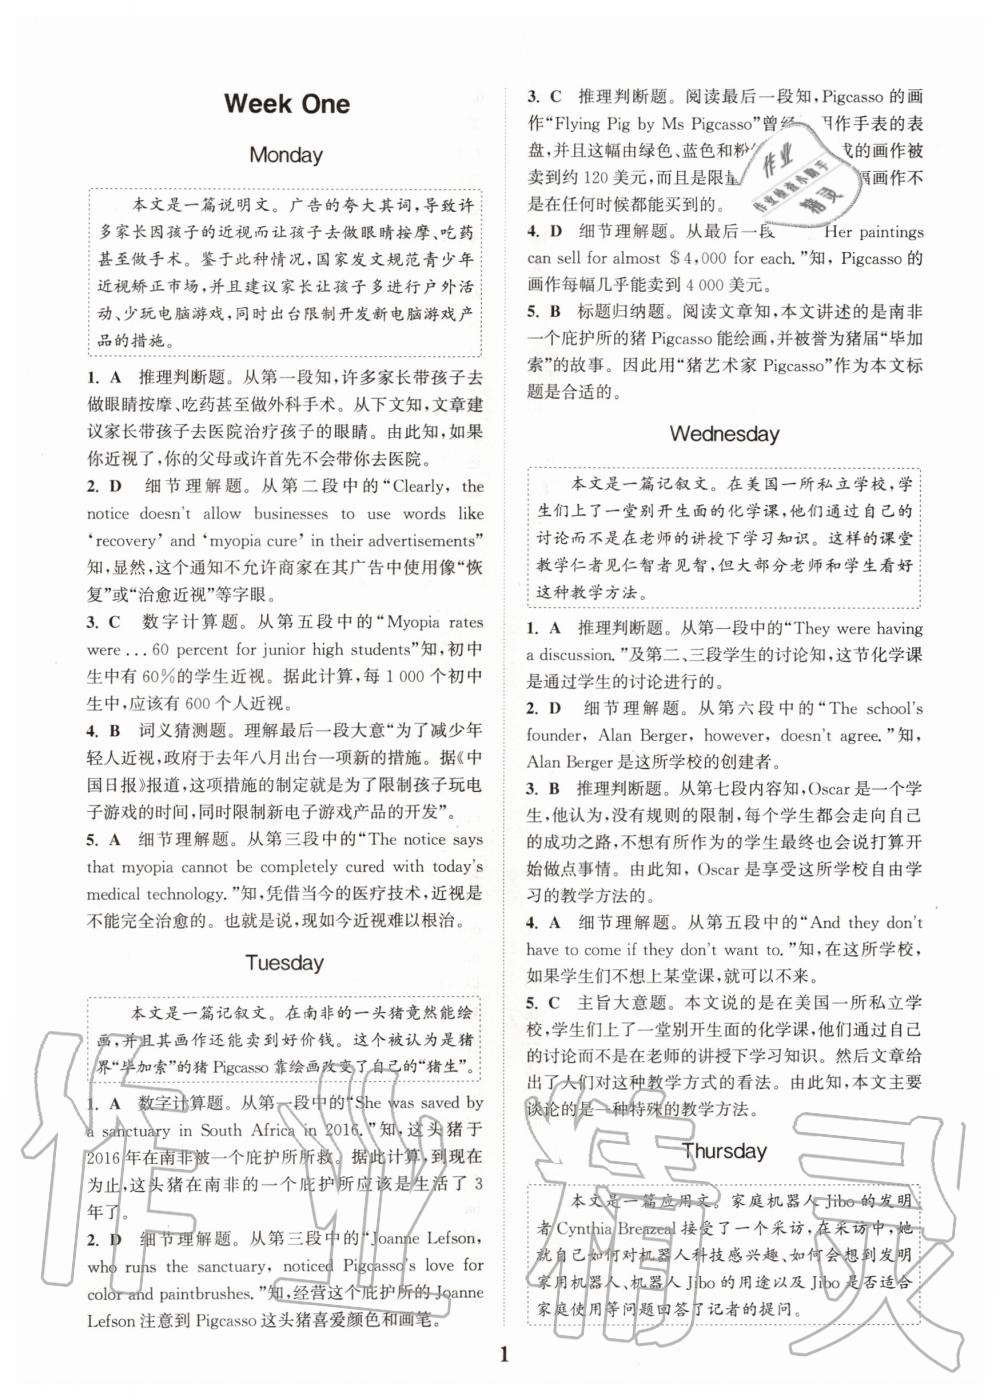 Week One
Monday
本文是一篇说明文。广告的夸大其词,导致许
多家长因孩子的近视而让孩子去做眼睛按摩、吃药
甚至做手术。鉴于此种情况,国家发文规范青少年
近视矫正市场,并且建议家长让孩子多进行户外活
动、少玩电脑游戏,同时出台限制开发新电脑游戏产
品的措施。
1. A 推理判断题。从第一段知,许多家长带孩子去
做眼睛按摩、吃药甚至做外科手术。从下文知,文章建
议家长带孩子去医院治疗孩子的眼睛。由此知,如果
你近视了,你的父母或许首先不会带你去医院。
2. D 细节理解题。从第二段中的“Clearly, the
notice doesn't allow businesses to use words like
‘recovery’ and ‘myopia cure’ in their advertisements”
知,显然,这个通知不允许商家在其广告中使用像“恢
复”或“治愈近视”等字眼。
3. C 数字计算题。从第五段中的“Myopia rates
were ... 60 percent for junior high students”知,初中
生中有60%的学生近视。据此计算,每1 000个初中
生中,应该有600个人近视。
4. B 词义猜测题。理解最后一段大意“为了减少年
轻人近视,政府于去年八月出台一项新的措施。据《中
国日报》报道,这项措施的制定就是为了限制孩子玩电
子游戏的时间,同时限制新电子游戏产品的开发”。
5. A 细节理解题。从第三段中的“The notice says
that myopia cannot be completely cured with today's
medical technology.”知,凭借当今的医疗技术,近视是
不能完全治愈的。也就是说,现如今近视难以根治。
Tuesday
本文是一篇记叙文。在南非的一头猪竟然能绘
画,并且其画作还能卖到好价钱。这个被认为是猪
界“毕加索”的猪Pigcasso靠绘画改变了自己的“猪生”。
1. A 数字计算题。从第一段中的“She was saved by
a sanctuary in South Africa in 2016.”知,这头猪于
2016年在南非被一个庇护所所救。据此计算,到现在
为止,这头猪在南非的一个庇护所应该是生活了3
年了。
2. D 细节理解题。从第三段中的“Joanne Lefson,
who runs the sanctuary, noticed Pigcasso's love for
color and paintbrushes.”知,经营这个庇护所的Joanne
Lefson注意到Pigcasso这头猪喜爱颜色和画笔。
3. C 推理判断题。阅读最后一段知,Pigcasso的画
作“Flying Pig by Ms Pigcasso”曾经 用作手表的表
盘,并且这幅由绿色、蓝色和粉 成的画作被
卖到约120美元,而且是限量 幅画作不
是在任何时候都能买到的。
4. D 细节理解题。从最后一段 Her paintings
can sell for almost $4,000 for each.”知,Pigcasso的
画作每幅几乎能卖到4 000美元。
5. B 标题归纳题。阅读文章知,本文讲述的是南非
一个庇护所的猪Pigcasso能绘画,并被誉为猪届“毕加
索”的故事。因此用“猪艺术家Pigcasso”作为本文标
题是合适的。
Wednesday
本文是一篇记叙文。在美国一所私立学校,学
生们上了一堂别开生面的化学课,他们通过自己的
讨论而不是在老师的讲授下学习知识。这样的课堂
教学仁者见仁智者见智,但大部分老师和学生看好
这种教学方法。
1. A 推理判断题。从第一段中的“They were having
a discussion.”及第二、三段学生的讨论知,这节化学课
是通过学生的讨论进行的。
2. D 细节理解题。从第六段中的“The school's
founder, Alan Berger, however, doesn't agree.”知,
Alan Berger是这所学校的创建者。
3. B 推理判断题。从第七段内容知,Oscar是一个学
生,他认为,没有规则的限制,每个学生都会走向自己
的成功之路,不想有所作为的学生最终也会说打算开
始做点事情。由此知,Oscar是享受这所学校自由学
习的教学方法的。
4. A 细节理解题。从第五段中的“And they don't
have to come if they don't want to.”知,在这所学校,
如果学生们不想上某堂课,就可以不来。
5. C 主旨大意题。本文说的是在美国一所私立学
校,学生们上了一堂别开生面的化学课,他们通过自己
的讨论而不是在老师的讲授下学习知识。然后文章给
出了人们对这种教学方式的看法。由此知,本文主要
谈论的是一种特殊的教学方法。
Thursday
本文是一篇应用文。家庭机器人Jibo的发明
者Cynthia Breazeal接受了一个采访,在采访中,她
就自己如何对机器人科技感兴趣、如何会想到发明
家用机器人、机器人Jibo的用途以及Jibo是否适合
家庭使用等问题回答了记者的提问。
1
作业
作业检查小助手
精灵
作业精灵